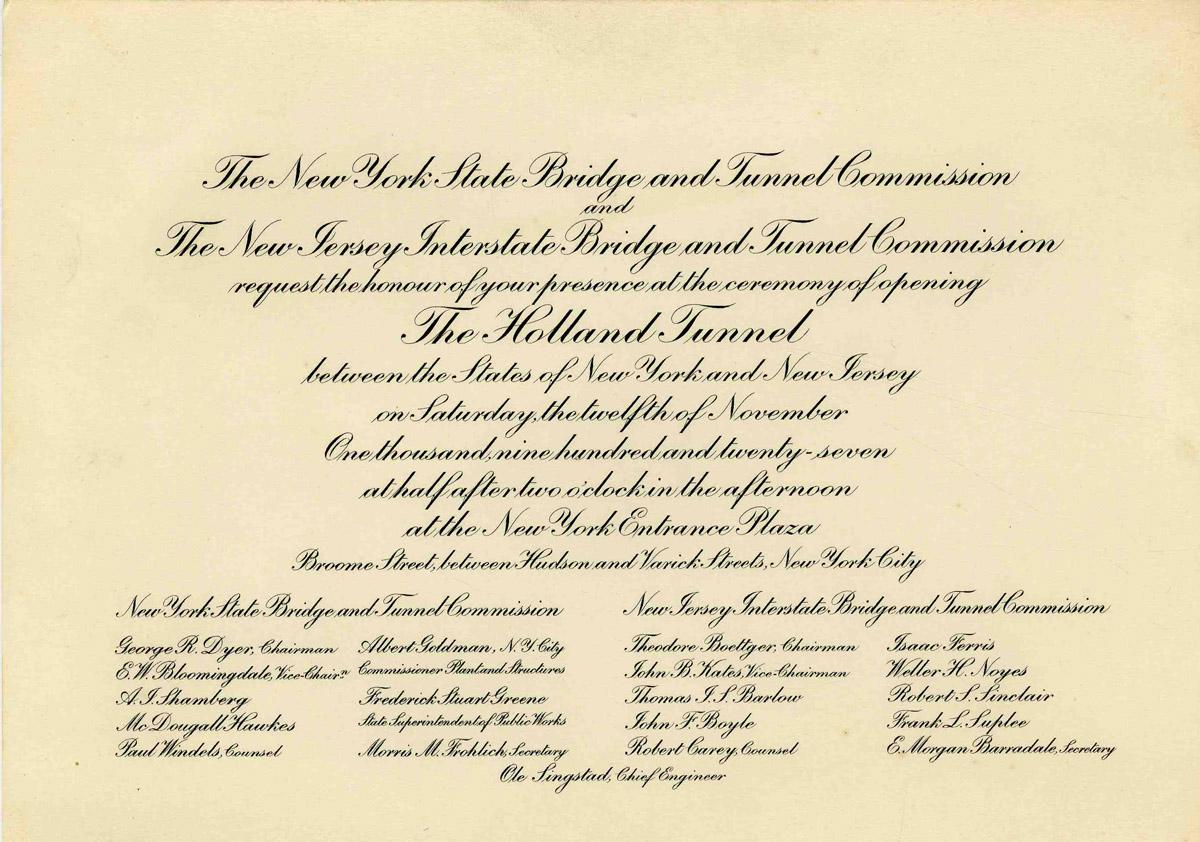 The New York State Bridge and Tunnel Commission
and
The New Jersey Interstate Bridge and Tunnel Commission
request the honour of your presence at the ceremony of opening
The Holland Tunnel
between the States of New York and New Jersey
on Saturday, the twelfth of November
One thousand, nine hundred and twenty-seven
at half after two o'clock in the afternoon
at the New York Entrance Plaza
Broome Street, between Hudson and Varick Streets, New York City
New York State Bridge and Tunnel Commission
George R. Dyer, Chairman
E.W. Bloomingdale, Vice-Chair'n
A.J. Shamberg
McDougall Hawkes
Paul Windels, Counsel
Albert Goldman, N.Y. City
Commissioner Plant and Structures
Frederick Stuart Greene
State Superintendent of Public Works
Morris M. Frohlich, Secretary
New Jersey Interstate Bridge and Tunnel Commission
Theodore Boettger, Chairman
John B. Kates, Vice-Chairman
Thomas J.S. Barlow
John F. Boyle
Robert Carey, Counsel
Isaac Ferris
Weller H. Noyes
Robert S. Sinclair
Frank L. Suplee
E. Morgan Barradale, Secretary
Ole Singstad, Chief Engineer